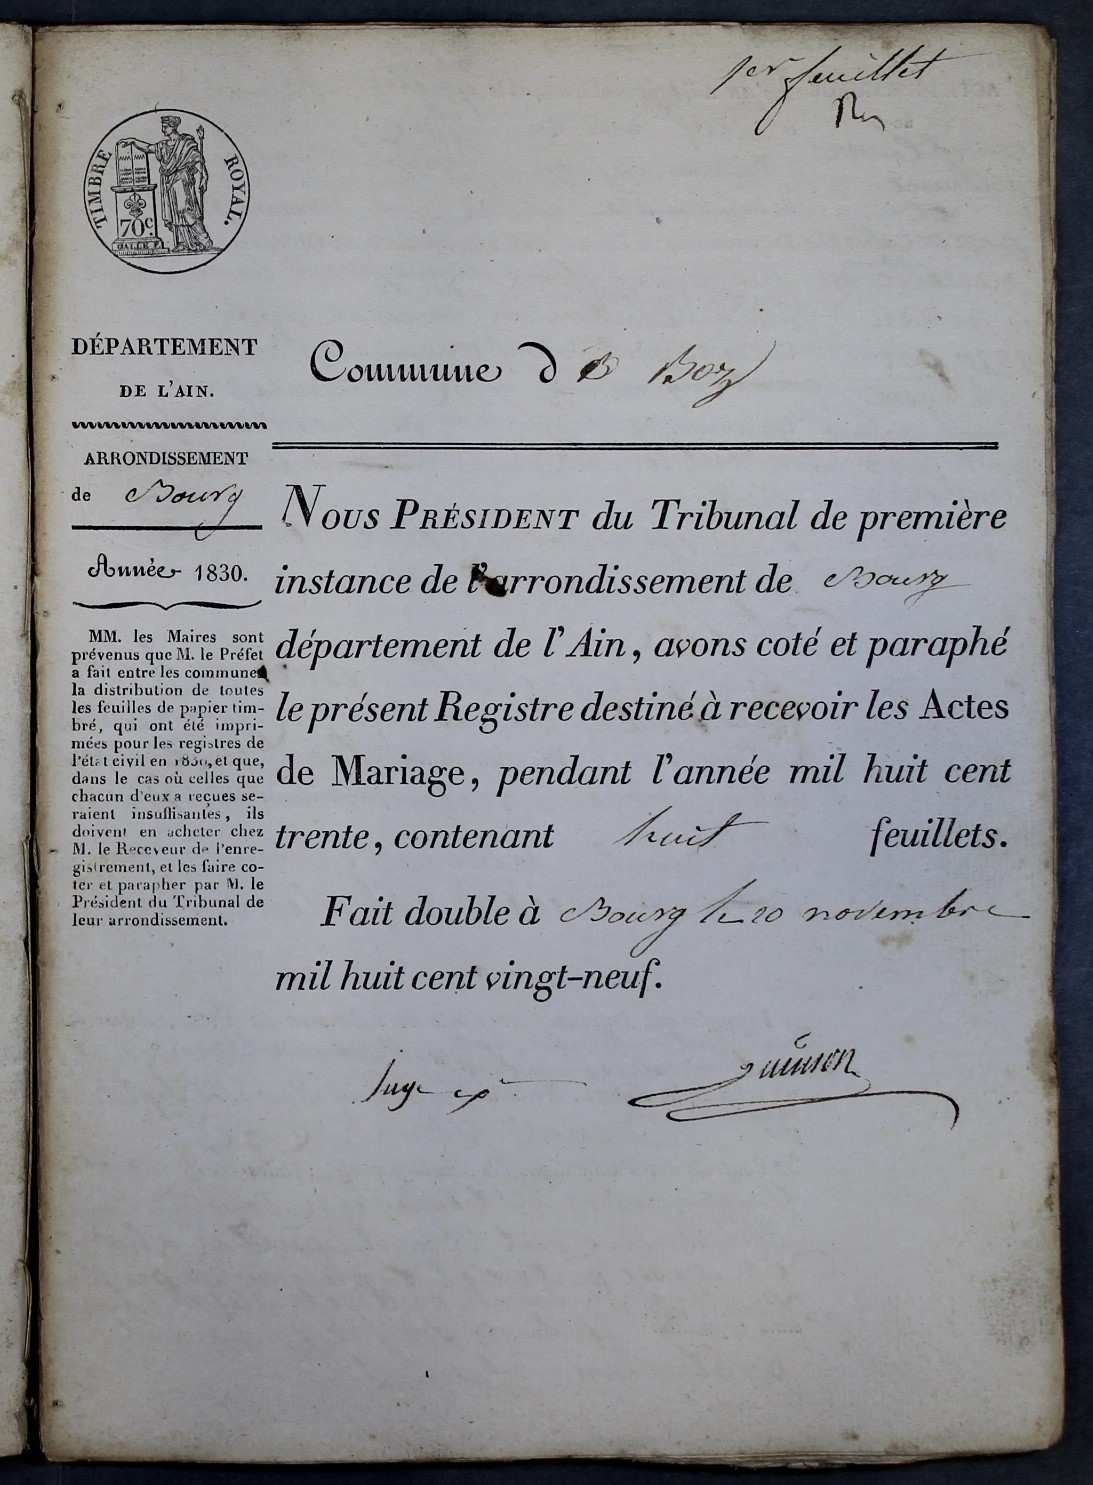 1er feuillet
TIMBRE ROYAL.
70c.
DÉPARTEMENT
DE L'AIN.
ARRONDISSEMENT
de Bourg
Année 1830.
MM. les Maires sont
prévenus que M. le Préfet
a fait entre les communes
la distribution de toutes
les feuilles de papier tim-
bré, qui ont été impri-
mées pour les registres de
l'état civil en 1830, et que,
dans le cas où celles que
chacun d'eux a reçues se-
raient insuffisantes, ils
doivent en acheter chez
M. le Receveur de l'enre-
gistrement, et les faire co-
ter et parapher par M. le
Président du Tribunal de
leur arrondissement.
Commune d Boz
NOUS PRÉSIDENT du Tribunal de première
instance de l'arrondissement de Bourg
département de l'Ain, avons coté et paraphé
le présent Registre destiné à recevoir les Actes
de Mariage, pendant l'année mil huit cent
trente, contenant huit feuillets.
Fait double à Bourg le 20 novembre
mil huit cent vingt-neuf.
Juge